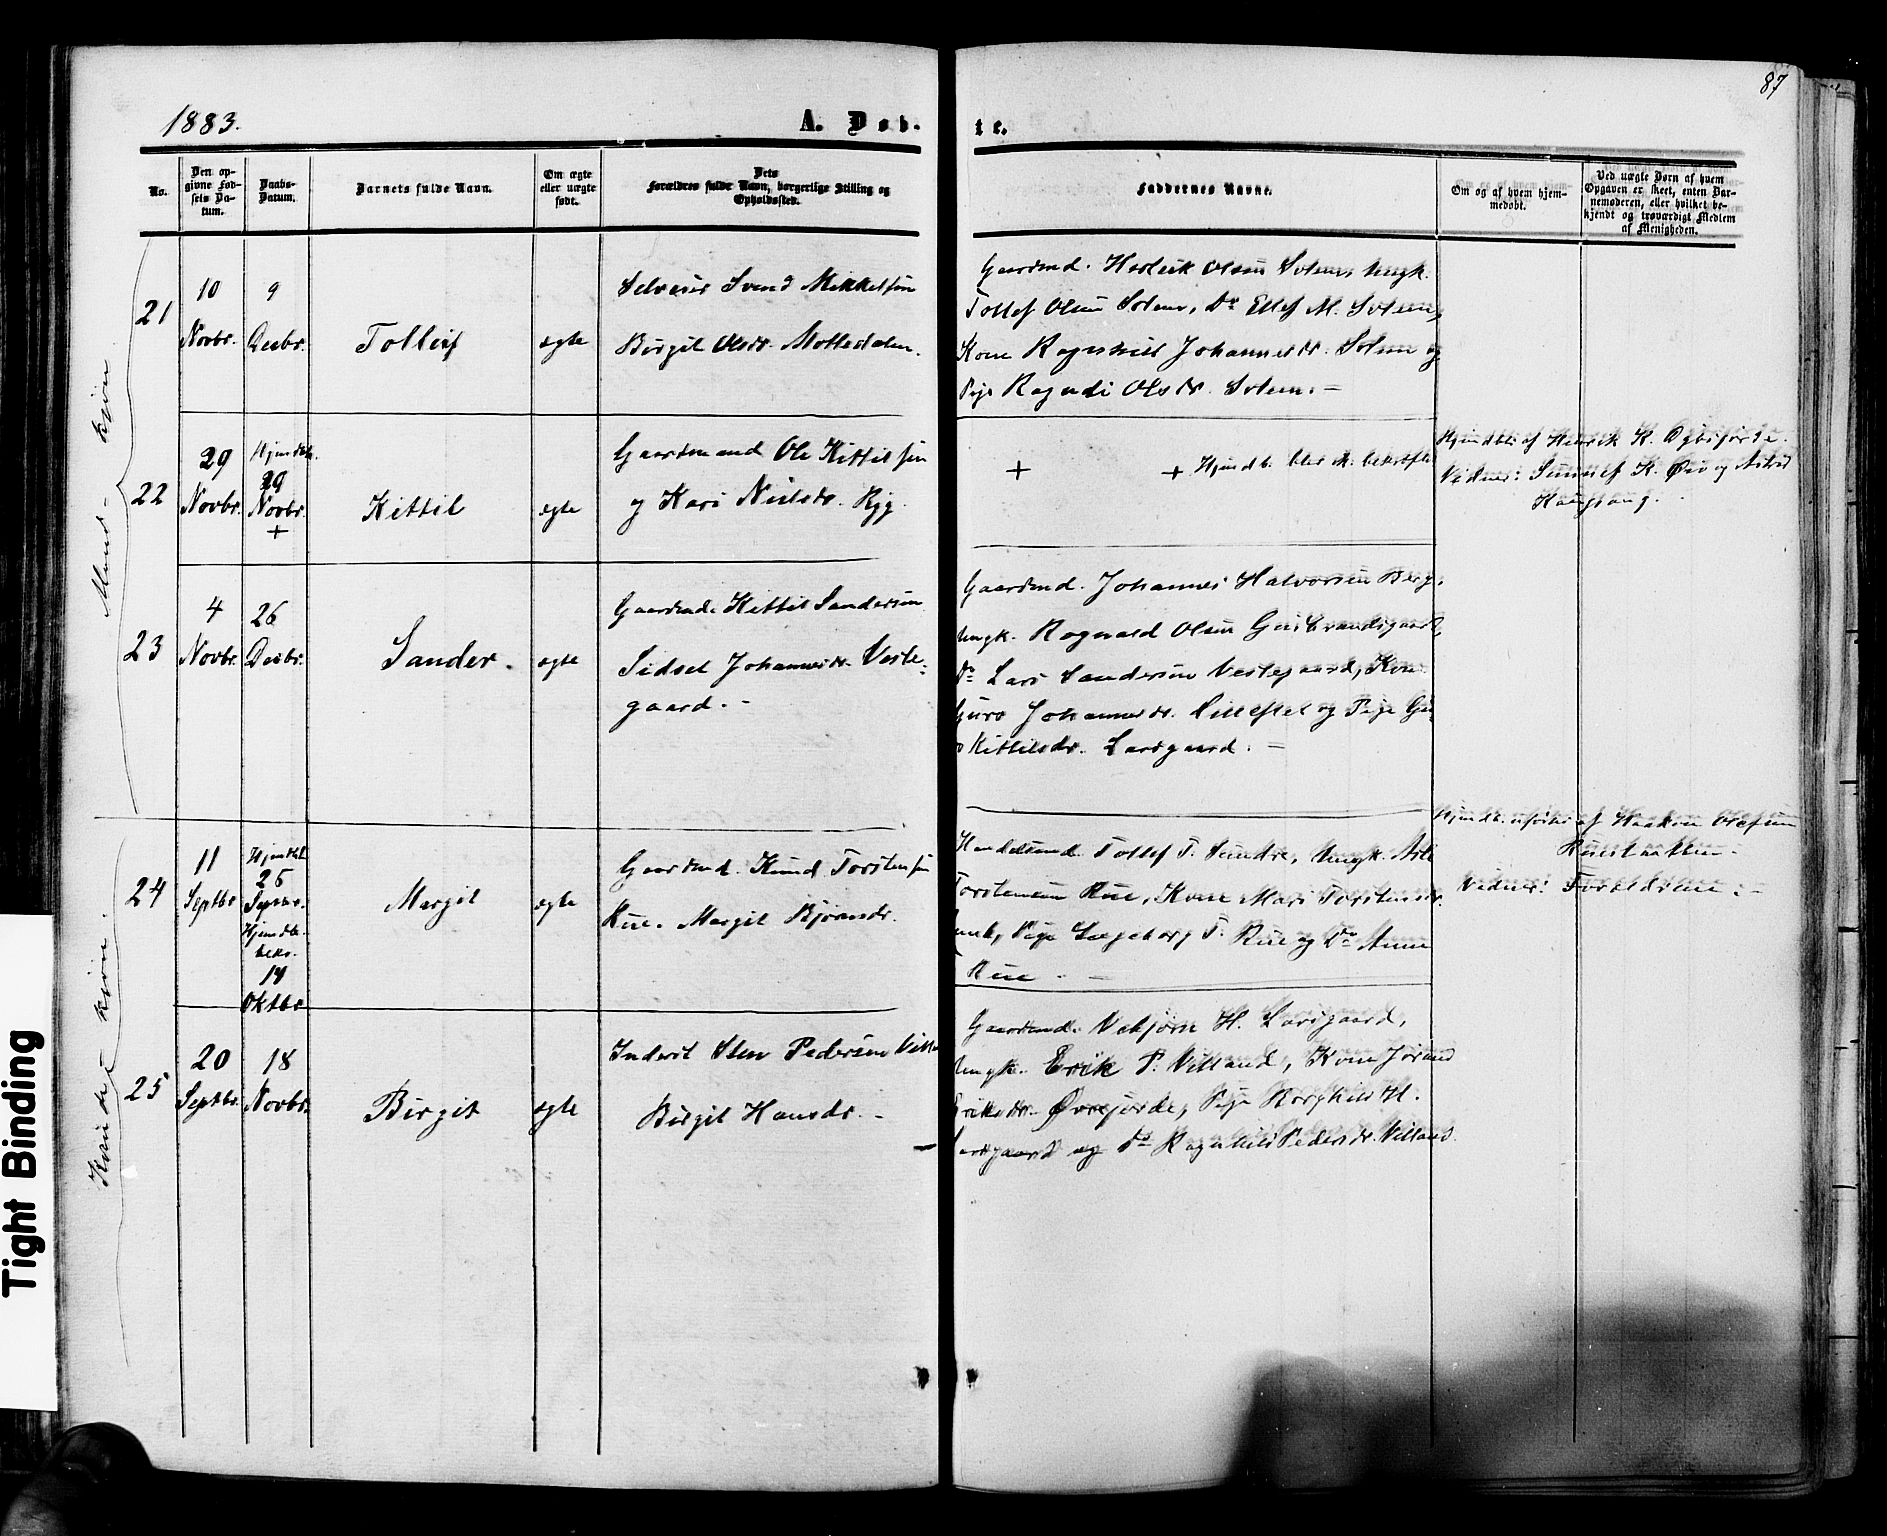 87
1883.
A. Døb-
te.
No.
Den op-
givne Fød-
sels Da-
tum.
Daabs-
Datum.
Barnets fulde Navn.
Om ægte
eller uægte
født.
Dets
Forældres fulde Navn, borgerlige Stilling og
Opholdssted.
Faddernes Navne.
Om og af hvem hjem-
medøbt.
Ved uægte Børn af hvem
Opgaven er skeet, enten Bar-
nemoderen, eller hvilket be-
kjendt og troværdigt Medlem
af Menigheden.
Mand-kjøn
21
10
Novbr.
9
Decbr.
Tolleif
ægte
Selveier Svend Mikkelsen
Birgit Olsdr. Mottedalen.
Gaardmd. Herleik Olsen Solem, Ungk.
Tollef Olsen Solem, Do Ellef M. Solem,
Kone Ragnhild Johannesdr. Solem og
Pige Ragndi Olsdr. Solem. —
22
29
Novbr.
Hjemdbt.
29
Novbr.
+
Kittil
ægte
Gaardmand Ole Kittilsen
og Kari Nielsdr. Ryg.
+
+ Hjemdb. blev ei bekræftet
Hjemdbt. af Henrik K.
Vidner: K. Øiv og Astrid
Haugsaug.
23
4
Novbr.
26
Decbr.
Sander.
ægte
Gaardmd. Kittil Sandersen
Sidsel Johannesdr. Veste-
gaard. -
Gaardmd. Johannes Halvorsen Berg,
Ungk. Ragnvald Olsen Gulbrandsgaard,
Do Lars Sandersen Vestegaard, Kone
Guro Johannesdr. Lilleflet og Pige Gu-
ro Kittilsdr. Larsgaard. —
Kvindekjøn.
24
11
Septbr
Hjemdbt.
25
Septbr.
Hjemdb.
bekr.
14
Oktbr
Margit
ægte
Gaardmd. Knud Torstensen
Rue. Margit Bjørnsdr.
Handelsmd. Tollef T. Sundre, Ungk. Asle
Torstensen Rue, Kone Mari Torstensdr.
Pige Ingeborg T. Rue og Do Anne
T. Rue. —
Hjemdb. udført af Haakon Olefsen
Ruestøkken.
Vidner: Forældrene. -
25
20
Septbr.
18
Novbr.
Birgit
ægte
Inderst Sten Pedersen Villand
Birgit Hansdr. -
Gaardmd. Vebjørn H. Larsgaard,
Ungk. Erik P. Villand, Kone Jørand
Eriksdr. Øvrejorde, Pige Borghild H.
Larsgaard og Do Ragnhild Pedersdr. Villand.
Tight Binding